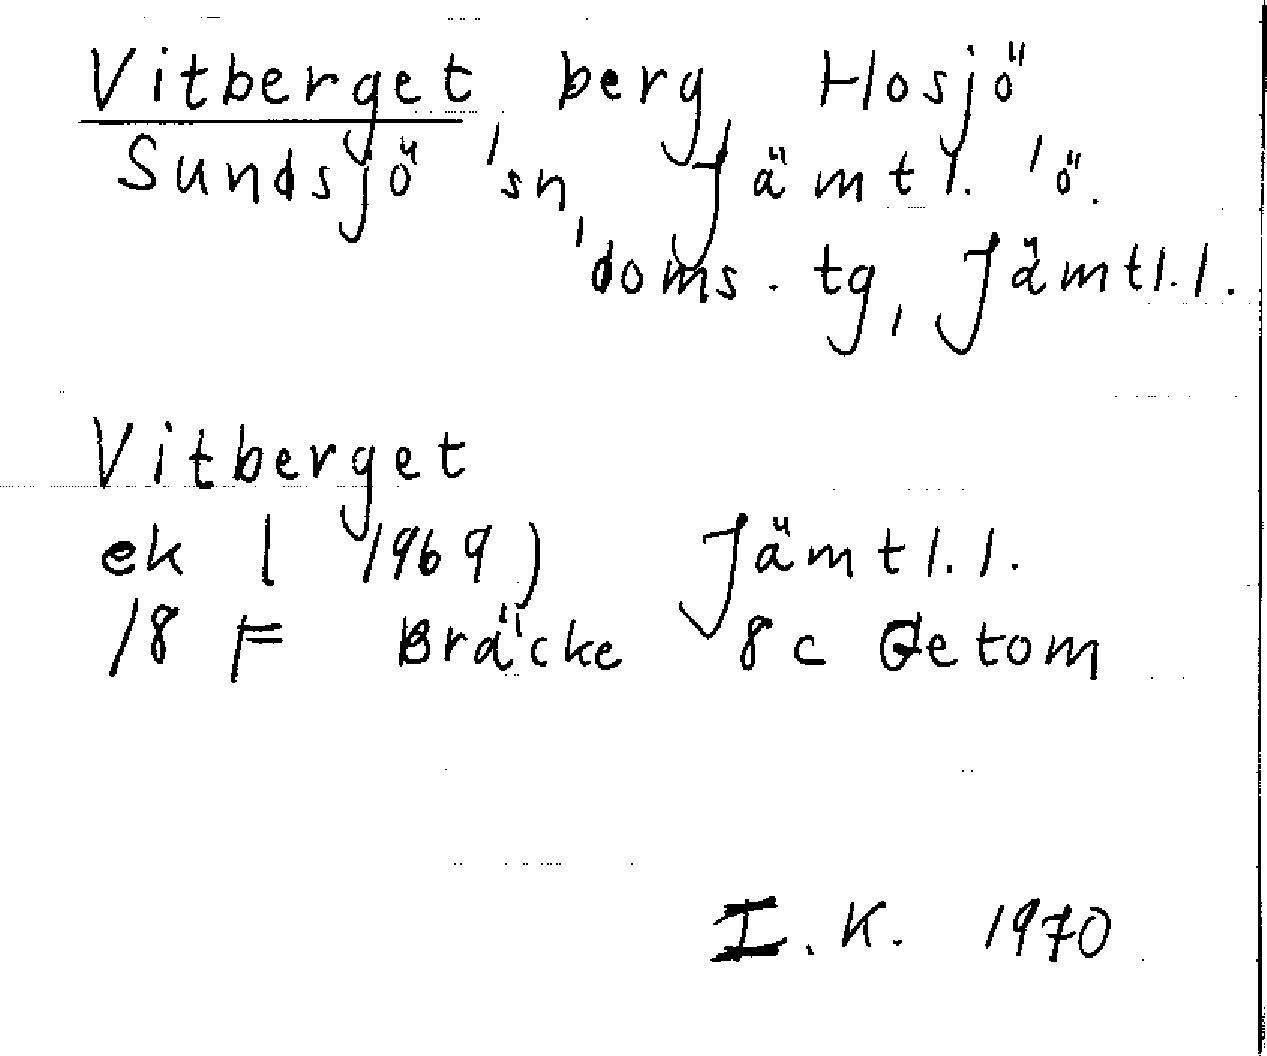 Vitberget, berg, Hosjö,
Sundsjö sn, Jämtl. ö.
doms. tg, Jämtl. l.
Vitberget
ek ( 1969 ) Jämtl. l.
18 F Bräcke 8 c Getom
I. K. 1970